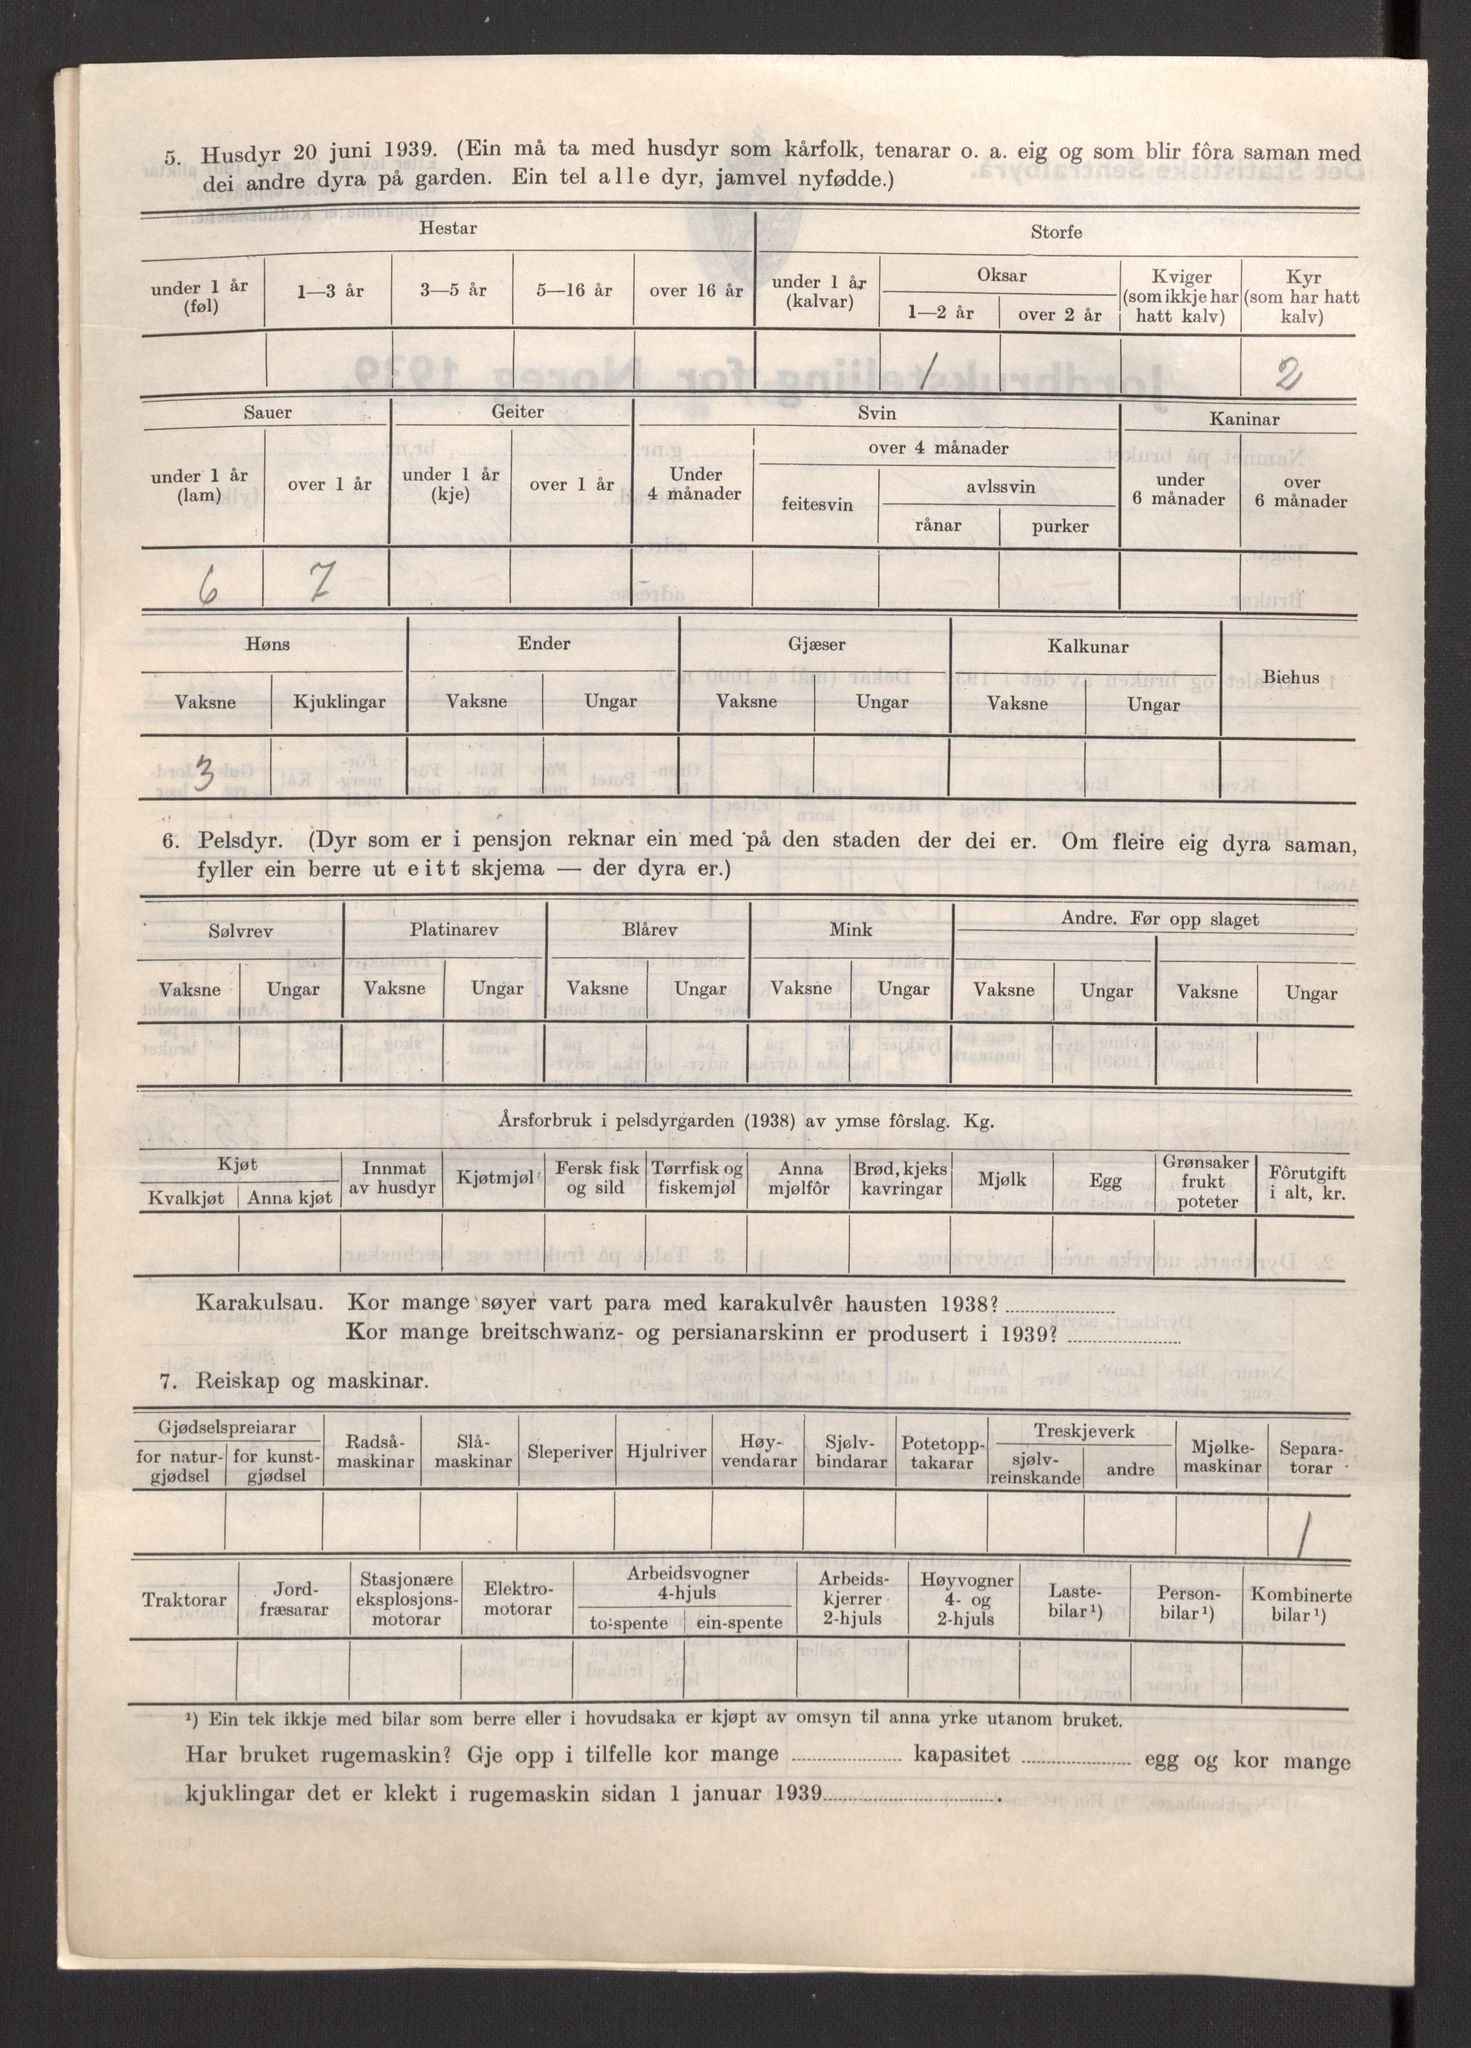 5. Husdyr 20 juni 1939. (Ein må ta med husdyr som kårfolk, tenarar o. a. eig og som blir fôra saman med
dei andre dyra på garden. Ein tel alle dyr, jamvel nyfødde.)
Hestar Storfe
under 1 år (føl) 1—3 år 3—5 år 5—16 år over 16 år under 1 år (kalvar) Oksar 1—2 år over 2 år Kviger (som ikkje har hatt kalv) Kyr (som har hatt kalv)
1 2
Sauer Geiter Svin Kaninar
under 1 år (lam) over 1 år under 1 år (kje) over 1 år Under 4 månader over 4 månader feitesvin avlssvin rånar purker under 6 månader over 6 månader
6 7
Høns Ender Gjæser Kalkunar Biehus
Vaksne Kjuklingar Vaksne Ungar Vaksne Ungar Vaksne Ungar
3
6. Pelsdyr. (Dyr som er i pensjon reknar ein med på den staden der dei er. Om fleire eig dyra saman,
fyller ein berre ut eitt skjema — der dyra er.)
Sølvrev Platinarev Blårev Mink Andre. Før opp slaget
Vaksne Ungar Vaksne Ungar Vaksne Ungar Vaksne Ungar Vaksne Ungar Vaksne Ungar
Årsforbruk i pelsdyrgarden (1938) av ymse fôrslag. Kg.
Kjøt Kvalkjøt Anna kjøt Innmat av husdyr Kjøtmjøl Fersk fisk og sild Tørrfisk og fiskemjøl Anna mjølfôr Brød, kjeks kavringar Mjølk Egg Grønsaker frukt poteter Fôrutgift i alt, kr.
Karakulsau. Kor mange søyer vart para med karakulvêr hausten 1938?
Kor mange breitschwanz- og persianarskinn er produsert i 1939?
7. Reiskap og maskinar.
Gjødselspreiarar for natur-gjødsel for kunst-gjødsel Radså-maskinar Slå-maskinar Sleperiver Hjulriver Høy-vendarar Sjølv-bindarar Potetopp-takarar Treskjeverk sjølv-reinskande andre Mjølke-maskinar Separa-torar
1
Traktorar Jord-fræsarar Stasjonære eksplosjons-motorar Elektro-motorar Arbeidsvogner 4-hjuls to-spente ein-spente Arbeids-kjerrer 2-hjuls Høyvogner 4- og 2-hjuls Laste-bilar¹) Person-bilar¹) Kombinerte bilar¹)
¹) Ein tek ikkje med bilar som berre eller i hovudsaka er kjøpt av omsyn til anna yrke utanom bruket.
Har bruket rugemaskin? Gje opp i tilfelle kor mange kapasitet egg og kor mange
kjuklingar det er klekt i rugemaskin sidan 1 januar 1939.